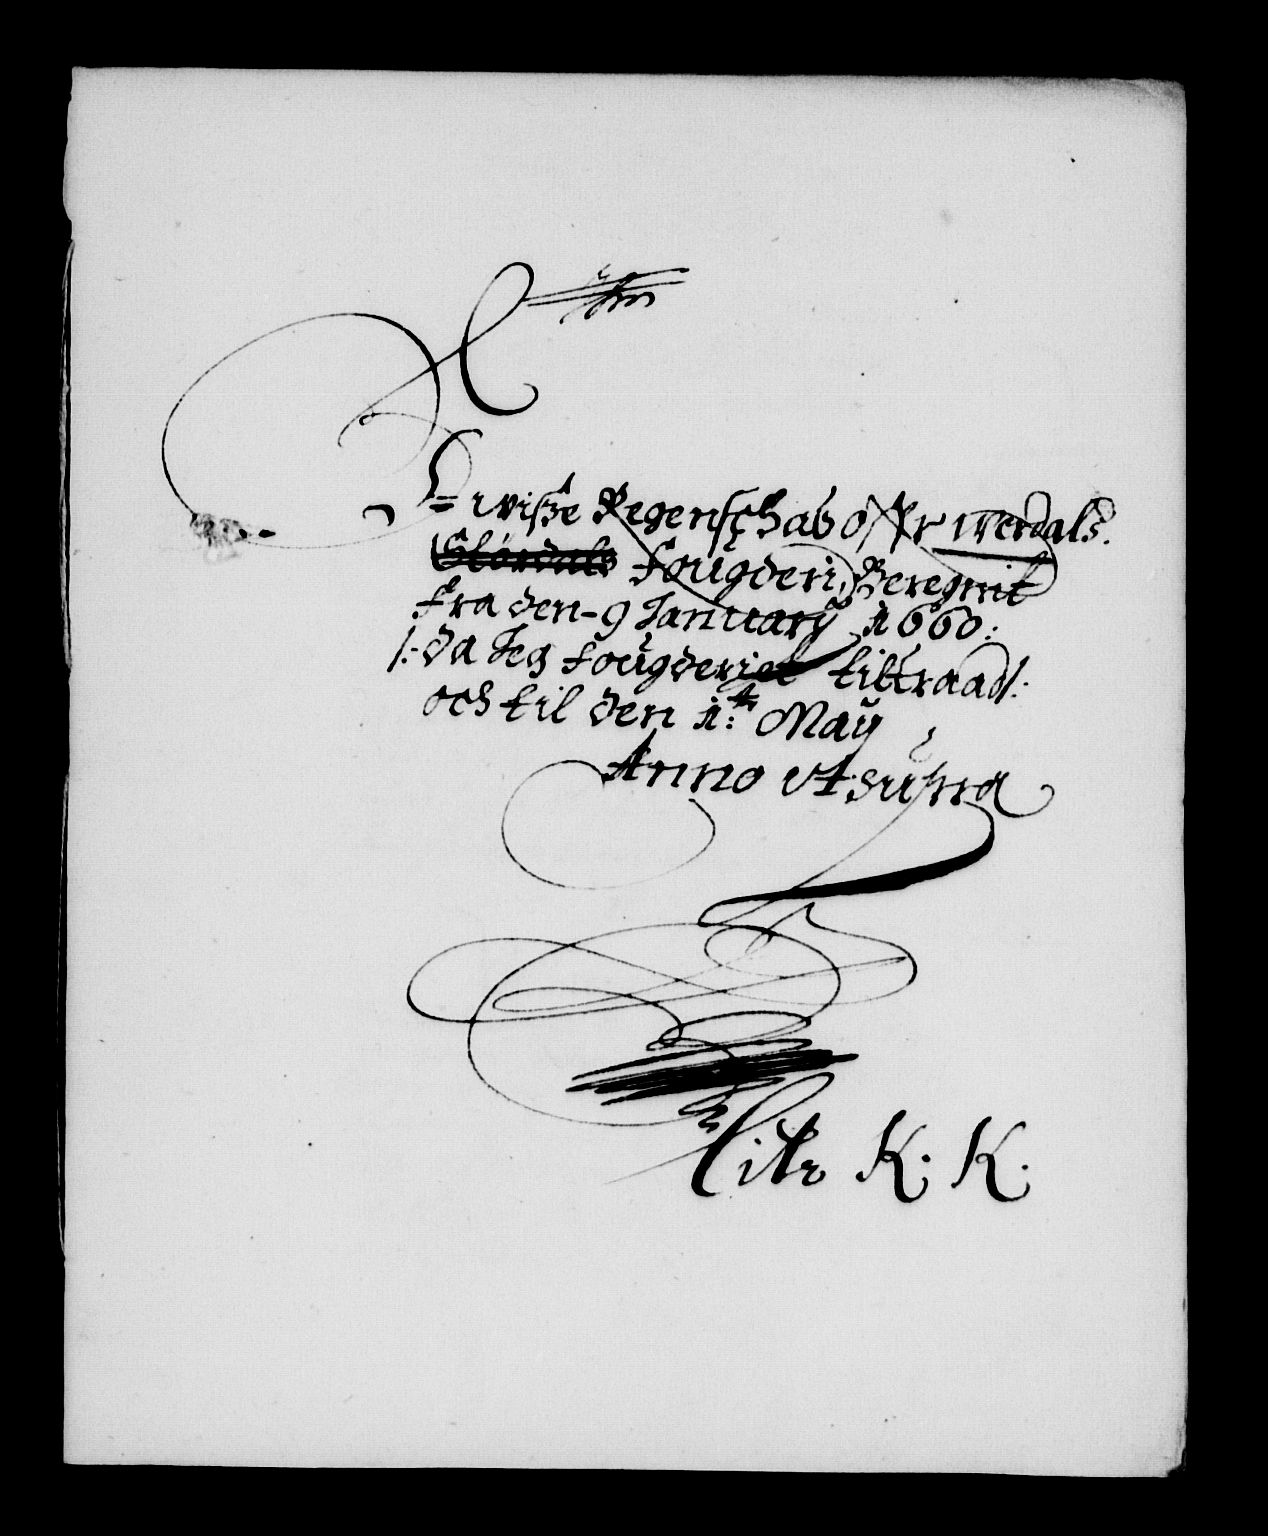 wiße Regenschab offr werdals.
Stördals fougderi, Beregnit
fra den 9 January 1660:
/:da Jeg fougderiet tiltraad/:
och til den 1: May
Anno ut Supra
Litr K. K.